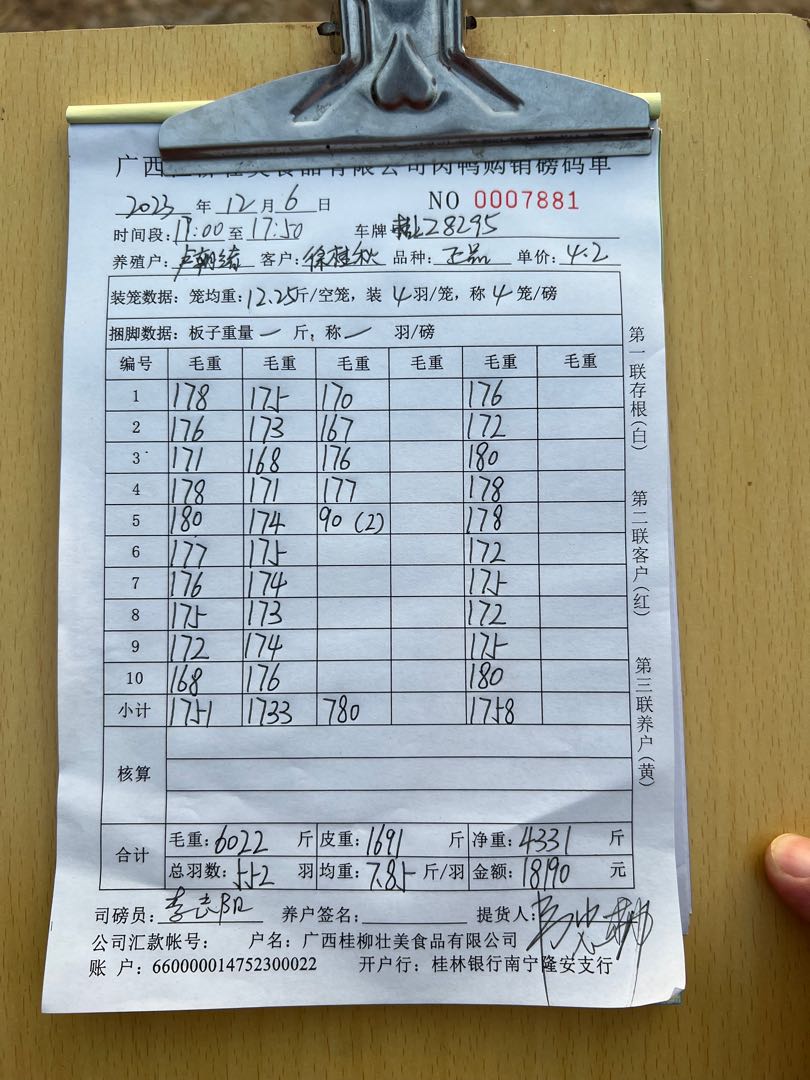 广西桂柳壮美食品有限公司肉鸭购销磅码单
2023 年 12 月 6 日 NO 0007881
时间段: 17:00 至 17:50 车牌 28295
养殖户: 卢朝绪 客户: 徐桂秋 品种: 正品 单价: 4.2
装笼数据: 笼均重: 12.25斤/空笼, 装 4 羽/笼, 称 4 笼/磅
捆脚数据: 板子重量 一 斤, 称 一 羽/磅
编号 毛重 毛重 毛重 毛重 毛重 毛重
1 178 175 170 176
2 176 173 167 172
3 171 168 176 180
4 178 171 177 178
5 180 174 90 (2) 178
6 177 175 172
7 176 174 175
8 175 173 172
9 172 174 175
10 168 176 180
小计 1751 1733 780 1758
核算
合计 毛重: 6022 斤 皮重: 1691 斤 净重: 4331 斤
总羽数: 552 羽 均重: 7.85 斤/羽 金额: 18190 元
司磅员: 李志阳 养户签名: 提货人:
公司汇款帐号: 户名: 广西桂柳壮美食品有限公司
账 户: 660000014752300022 开户行: 桂林银行南宁隆安支行
第一联存根(白)
第二联客户(红)
第三联养户(黄)